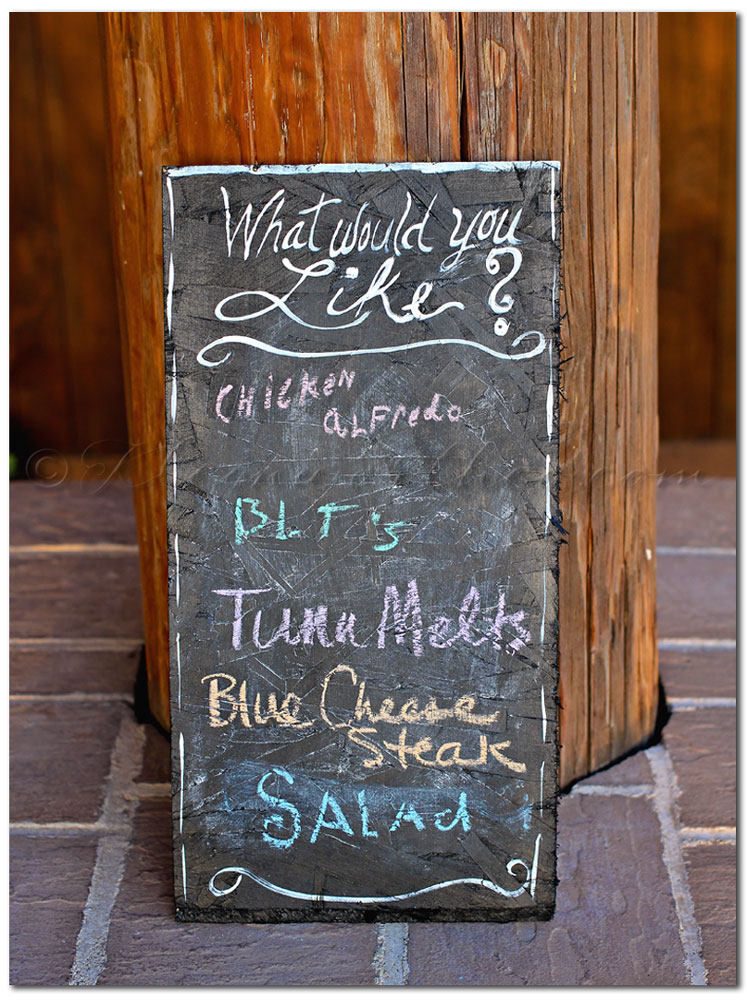 What would you
Like?
CHICKEN
ALFredo
BLT's
Tuna Melts
Blue Cheese
Steak
SALAd